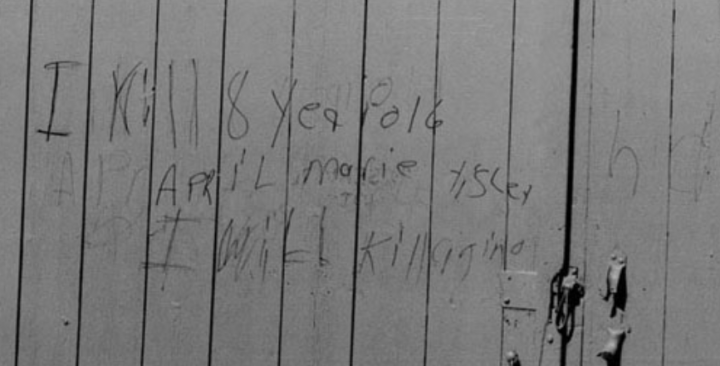 I Kill 8 year old
APRIL marie tisley
I Will Kill agin